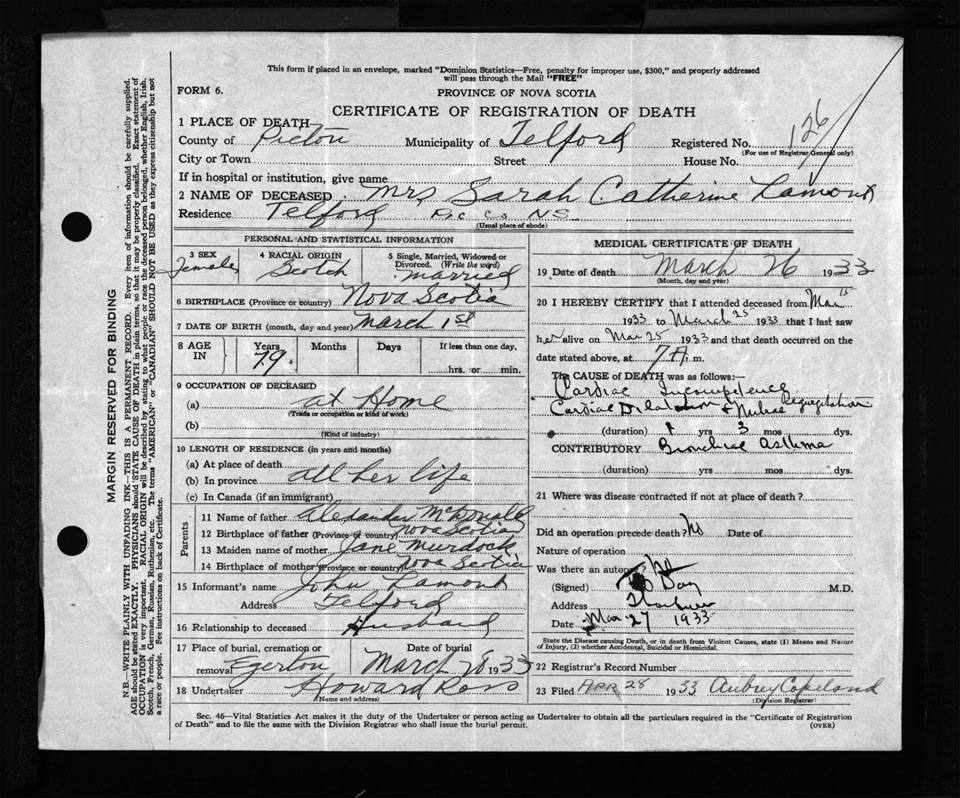 This form if placed in an envelope, marked "Dominion Statistics—Free, penalty for improper use, $300," and properly addressed
will pass through the Mail "FREE"
FORM 6.
PROVINCE OF NOVA SCOTIA
CERTIFICATE OF REGISTRATION OF DEATH
1 PLACE OF DEATH
County of Pictou Municipality of Telford Registered No. 126
(For use of Registrar General only)
City or Town Street House No.
If in hospital or institution, give name
2 NAME OF DECEASED Mrs Sarah Catherine Lamont
Residence Telford Pic Co NS
(Usual place of abode)
PERSONAL AND STATISTICAL INFORMATION
3 SEX Female
4 RACIAL ORIGIN Scotch
5 Single, Married, Widowed or Divorced. (Write the word) married
6 BIRTHPLACE (Province or country) Nova Scotia
7 DATE OF BIRTH (month, day and year) March 1st
8 AGE IN Years Months Days If less than one day,
79
hrs. or min.
9 OCCUPATION OF DECEASED
(a) at Home
(Trade or occupation or kind of work)
(b)
(Kind of industry)
10 LENGTH OF RESIDENCE (in years and months)
(a) At place of death
(b) In province all her life
(c) In Canada (if an immigrant)
Parents
11 Name of father Alexander McDonald
12 Birthplace of father (Province or country) Nova Scotia
13 Maiden name of mother Jane Murdock
14 Birthplace of mother (Province or country) Nova Scotia
15 Informant's name John Lamont
Address Telford
16 Relationship to deceased Husband
17 Place of burial, cremation or removal Egerton
Date of burial March 28 1933
18 Undertaker Howard Ross
(Name and address)
MEDICAL CERTIFICATE OF DEATH
19 Date of death March 26 1933
(Month, day and year)
20 I HEREBY CERTIFY that I attended deceased from Mar 15
1933 to March 25 1933 that I last saw
her alive on Mar 25 1933 and that death occurred on the
date stated above, at 7 A.m.
The CAUSE of DEATH was as follows:—
Cardiac Incompetence
Cardiac Dilatation & Mitral Regurgitation
(duration) 1 yrs 3 mos dys.
CONTRIBUTORY Bronchial Asthma
(duration) yrs mos dys.
21 Where was disease contracted if not at place of death?
Did an operation precede death? No Date of
Nature of operation
Was there an autopsy?
(Signed) Day M.D.
Address
Date Mar 27 1933
State the Disease causing Death, or in death from Violent Causes, state (1) Means and Nature
of Injury, (2) whether Accidental, Suicidal or Homicidal.
22 Registrar's Record Number
23 Filed APR 28 1933 Aubrey Copeland
(Division Registrar)
Sec. 46—Vital Statistics Act makes it the duty of the Undertaker or person acting as Undertaker to obtain all the particulars required in the "Certificate of Registration
of Death" and to file the same with the Division Registrar who shall issue the burial permit.
(OVER)
MARGIN RESERVED FOR BINDING
N.B.—WRITE PLAINLY WITH UNFADING INK—THIS IS A PERMANENT RECORD. Every item of information should be carefully supplied.
AGE should be stated EXACTLY. PHYSICIANS should STATE CAUSE OF DEATH in plain terms, so that it may be properly classified. Exact statement of
OCCUPATION is very important. RACIAL ORIGIN will be described by stating to what people or race the deceased person belonged, whether English, Irish,
Scotch, French, German, Russian, Ruthenian, etc. The terms "AMERICAN" or "CANADIAN" SHOULD NOT BE USED as they express citizenship but not
a race or people. See instructions on back of Certificate.